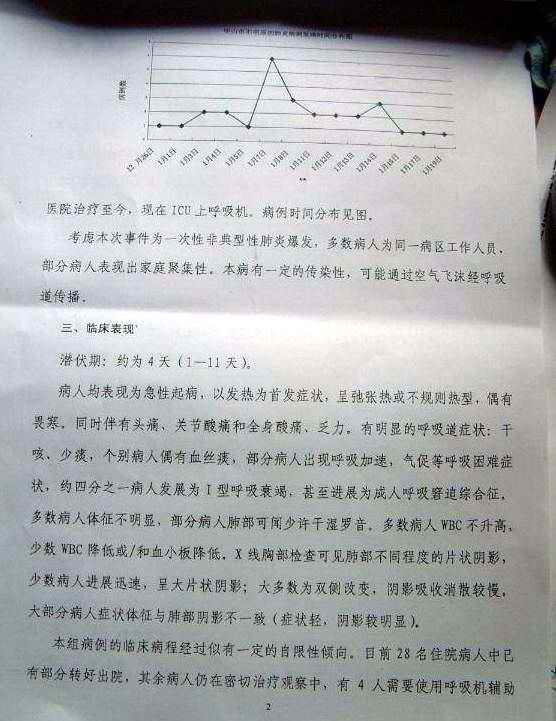 中山市不明原因肺炎病例发病时间分布图
病例数
12月26日 1月1日 1月3日 1月4日 1月5日 1月7日 1月8日 1月11日 1月12日 1月13日 1月14日 1月16日 1月18日
医院治疗至今，现在 ICU 上呼吸机。病例时间分布见图。
考虑本次事件为一次性非典型性肺炎爆发，多数病人为同一病区工作人员，
部分病人表现出家庭聚集性。本病有一定的传染性，可能通过空气飞沫经呼吸
道传播。
三、临床表现
潜伏期：约为 4 天（1—11 天）。
病人均表现为急性起病，以发热为首发症状，呈弛张热或不规则热型，偶有
畏寒。同时伴有头痛、关节酸痛和全身酸痛、乏力。有明显的呼吸道症状：干
咳、少痰，个别病人偶有血丝痰，部分病人出现呼吸加速，气促等呼吸困难症
状，约四分之一病人发展为 I 型呼吸衰竭，甚至进展为成人呼吸窘迫综合征。
多数病人体征不明显，部分病人肺部可闻少许干湿罗音。多数病人 WBC 不升高，
少数 WBC 降低或/和血小板降低。X 线胸部检查可见肺部不同程度的片状阴影，
少数病人进展迅速，呈大片状阴影；大多数为双侧改变，阴影吸收消散较慢。
大部分病人症状体征与肺部阴影不一致（症状轻，阴影较明显）。
本组病例的临床病程经过似有一定的自限性倾向。目前 28 名住院病人中已
有部分转好出院，其余病人仍在密切治疗观察中，有 4 人需要使用呼吸机辅助
2